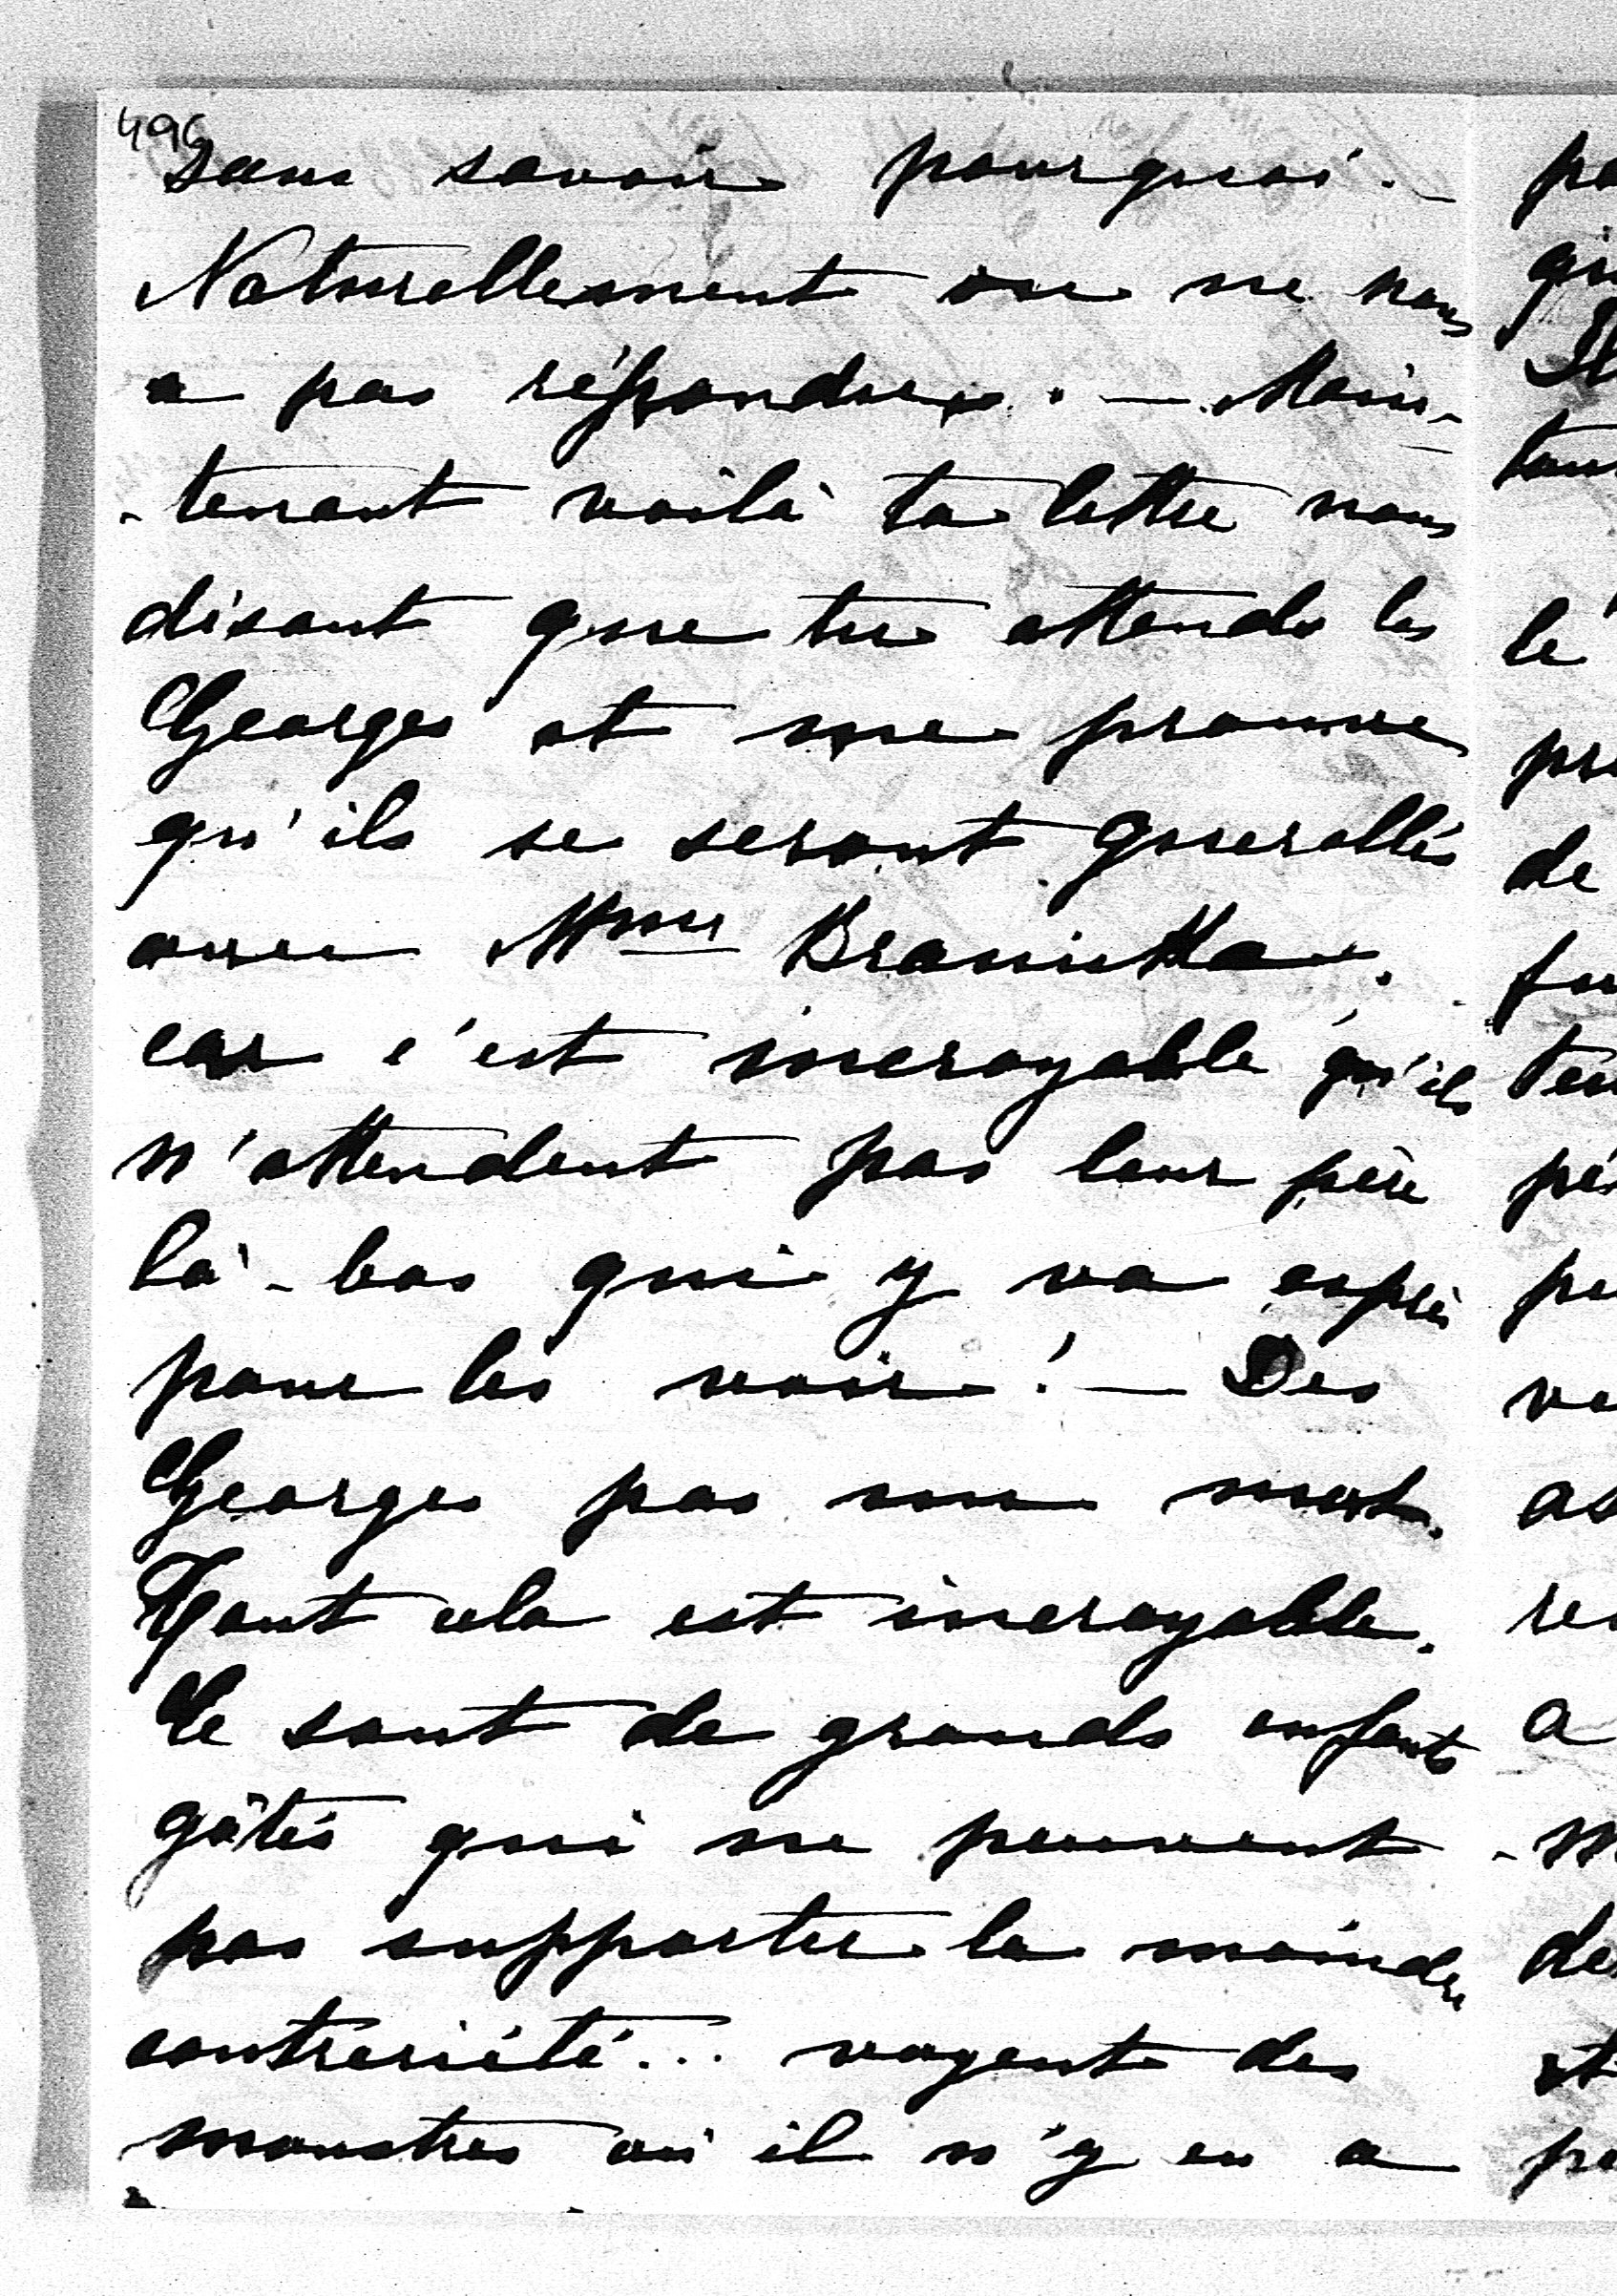 496
sans savoir pourquoi. –
Naturellement on ne nous
a pas répondu. – Main-
-tenant voilà ta lettre nous
disant que tu attends les
Georges et me prouve
qu'ils se seront querellés
avec Mme Branicka.
car c'est incroyable qu'ils
n'attendent pas leur père
là-bas qui y va exprès
pour les voir! – Des
Georges pas un mot.
Tout cela est incroyable.
Ce sont de grands enfants
gâtés qui ne peuvent
pas supporter la moindre
contreriété... voyent des
monstres où il n'y en a